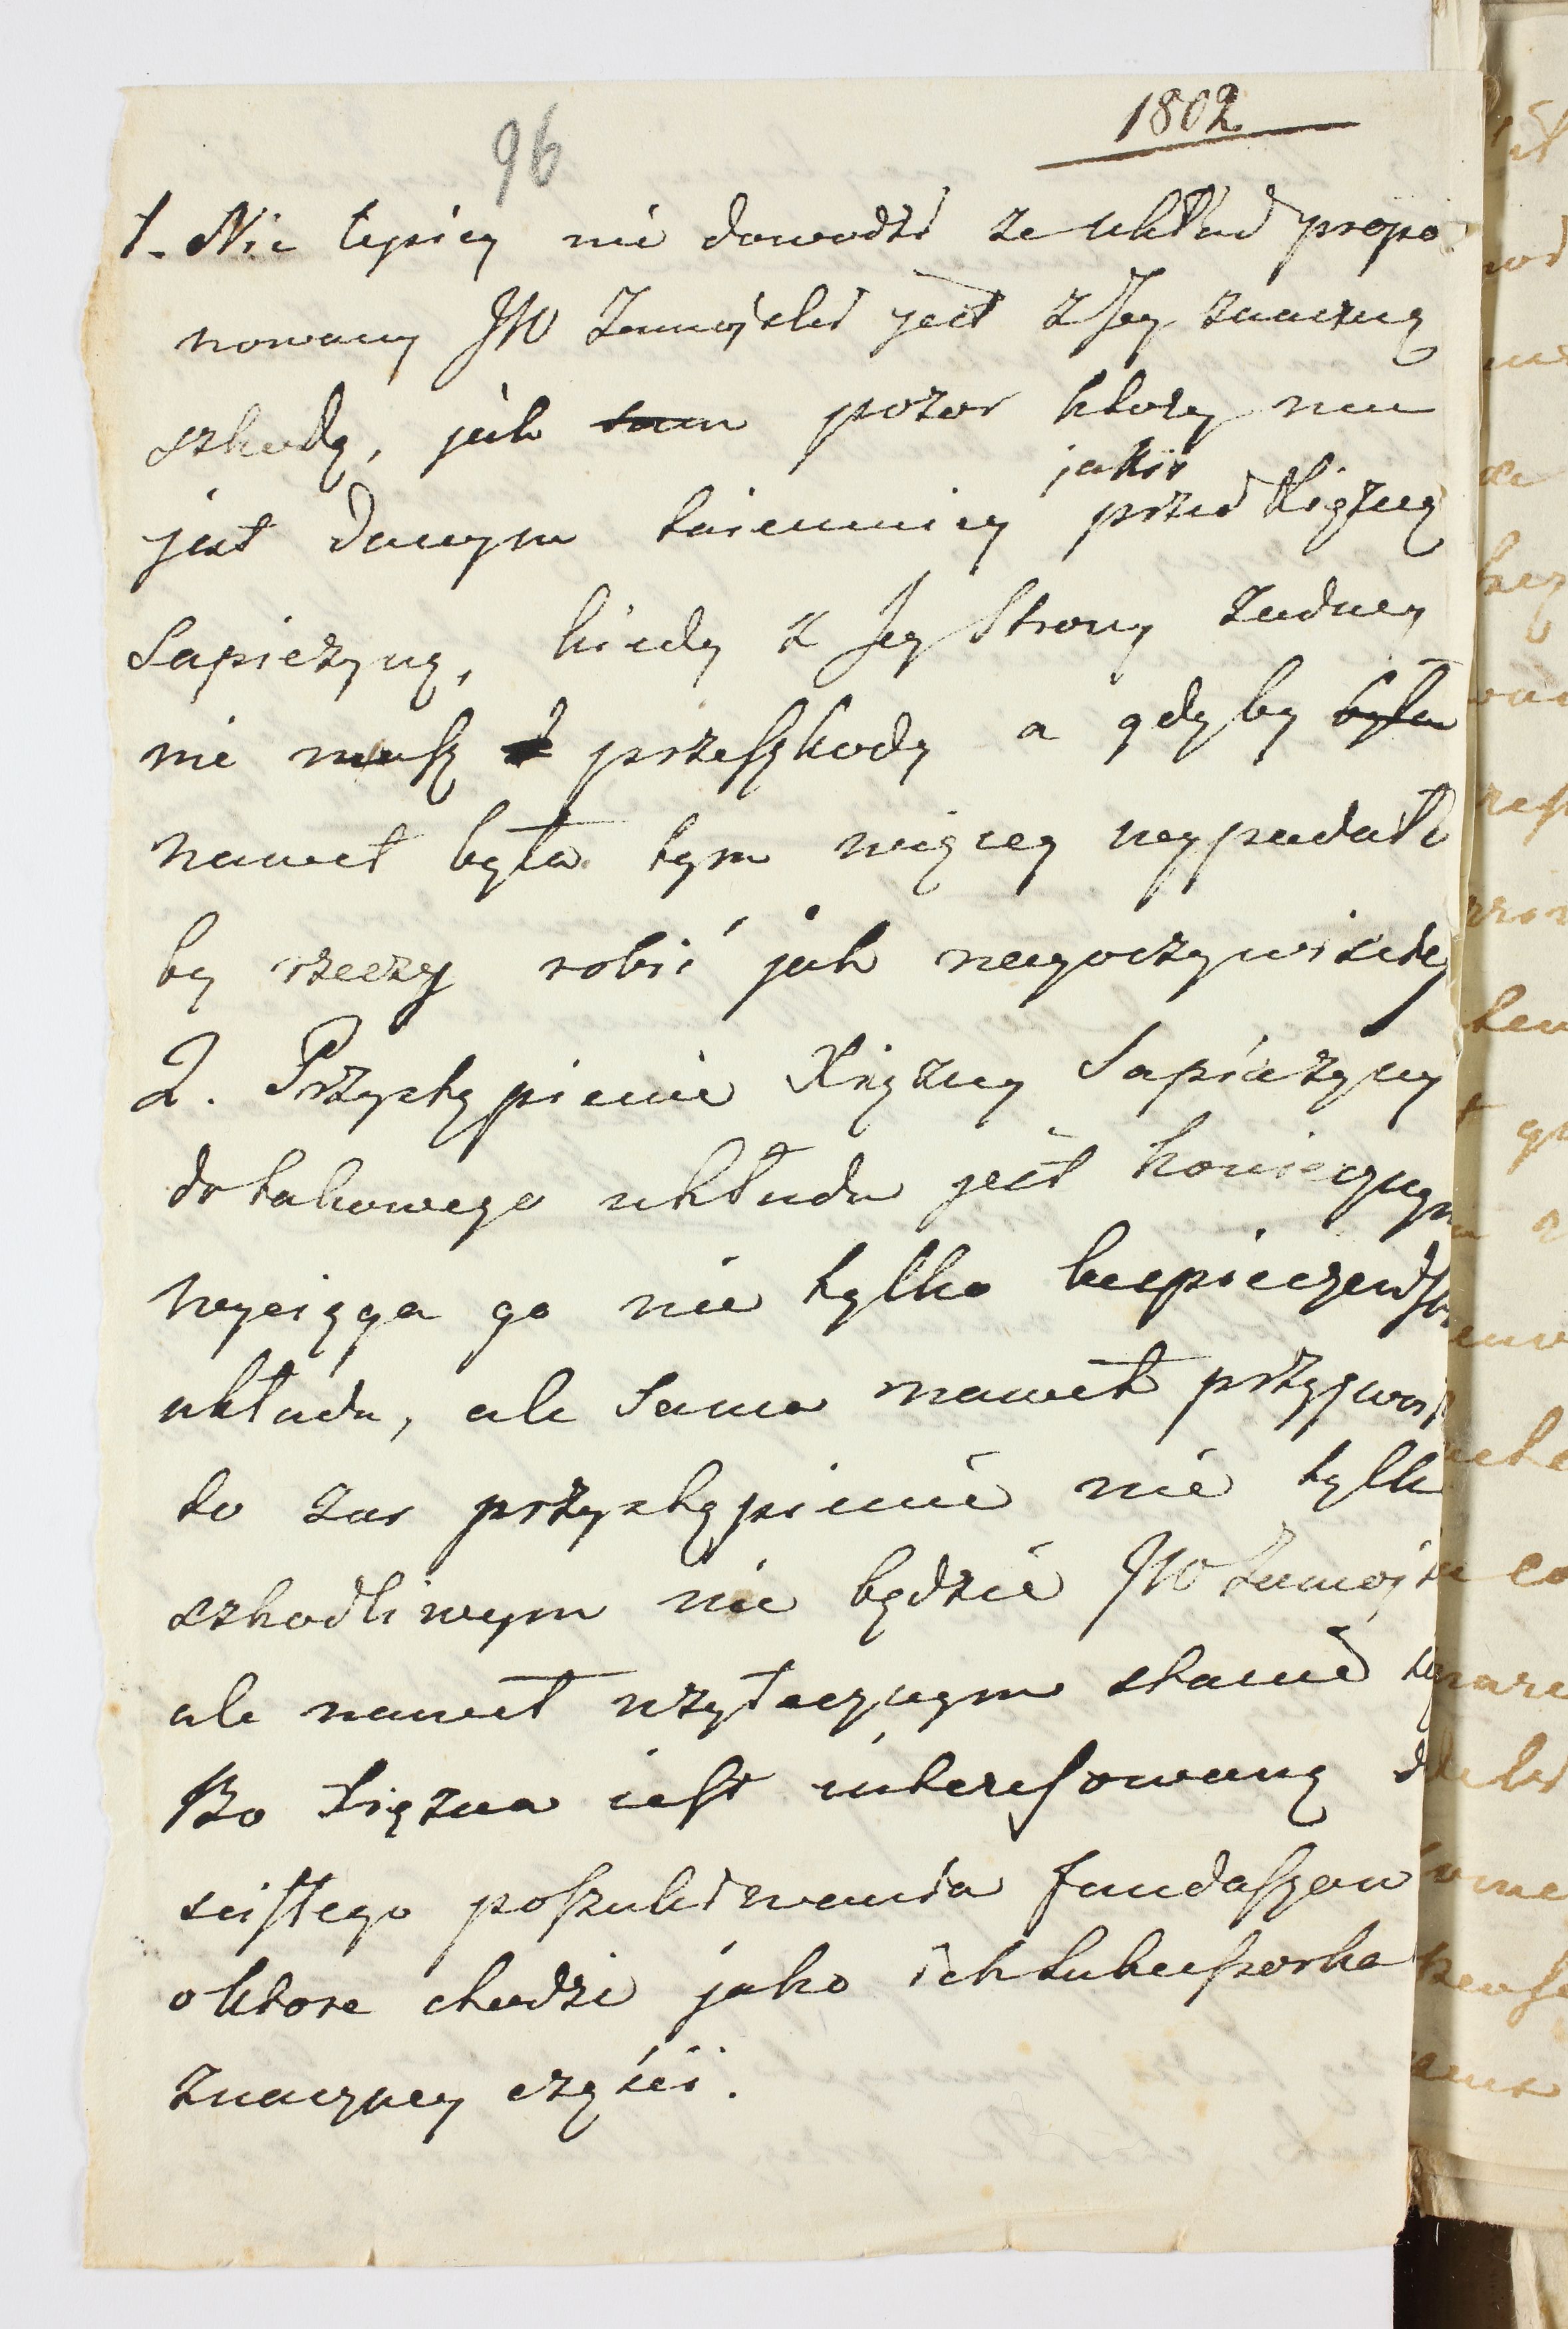 1802
96
1. Nic lepiey nie dowodzi ze układ propo
nowany JW Zamojski jest z Jey znaczną
szkodą, jak tam pozor ktory mu
jakis
jest danym taiemnicy przed Xiężną
Sapieżyną, kiedy z Jey Strony zadney
nie masz przeszkody a gdyby była
nawet była tym więcey wypadało
by rzeczy robić jak nayoczywisciey
2. Przystąpienie Xiężney Sapieżyny
do takowego układu jest koniecznym
wyciąga go nie tylko bespieczeństwo
układu, ale sama nawet przyzwoi
to zas przystąpienie nie tylk
szkodliwym nie będzie JW Zamojs
ale nawet uzytecznym stanie
Bo Xiężna iest interesowaną d
scisłego poszukiwania Funduszow
o ktore chodzi jako ich Sukcessorka
znaczney części.